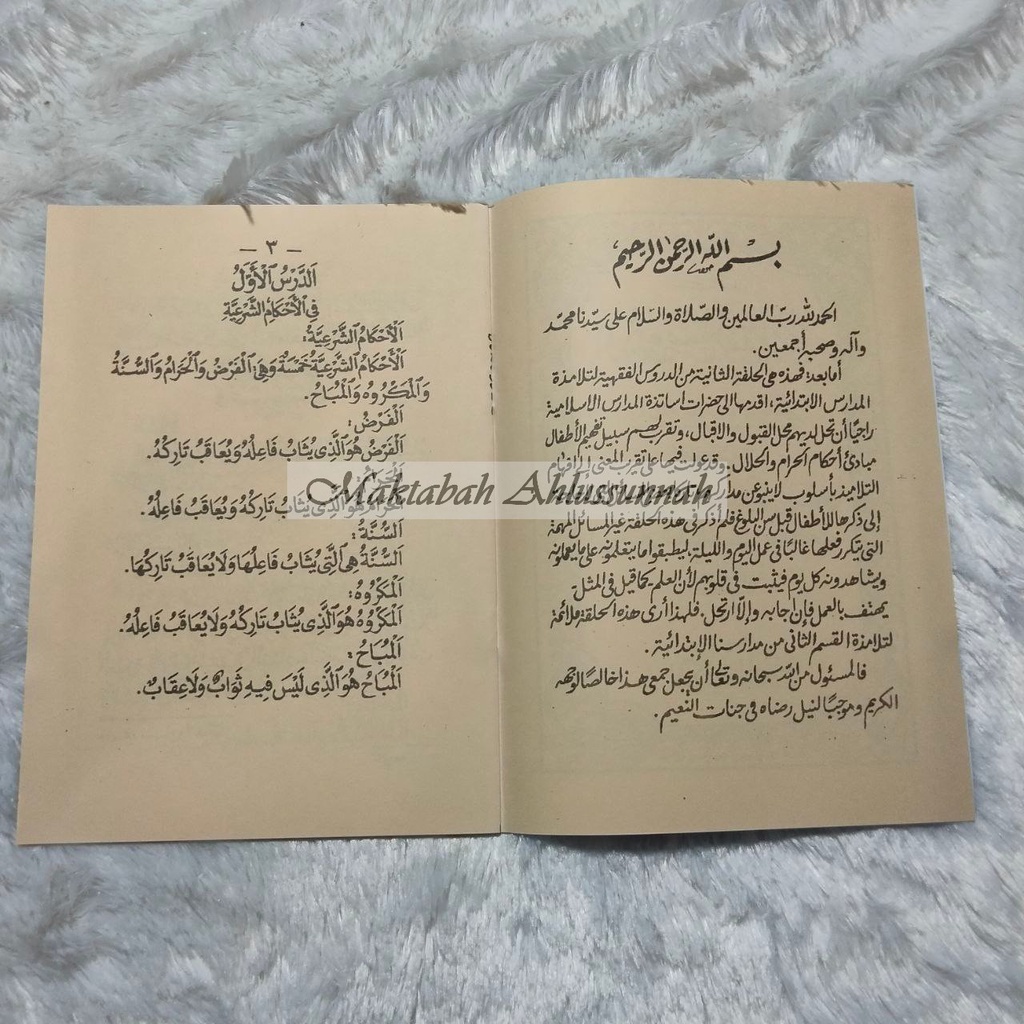 بسم الله الرحمن الرحيم
الحمد لله رب العالمين والصلاة والسلام على سيدنا محمد
وآله وصحبه أجمعين.
أما بعد: فهذه هي الحلقة الثانية من الدروس الفقهية لتلامذة
المدارس الابتدائية، اقدمها الى حضرات اساتذة المدارس الاسلامية
راجيًا أن تحل لديهم محل القبول والاقبال، وتقرب لهم سبيل تفهيم الأطفال
مبادئ أحكام الحرام والحلال. وقد عولت فيها على تقريب المعنى الى افهام
التلاميذ بأسلوب لا ينبو عن
إلى ذكرها للأطفال قبل سن البلوغ فلم أذكر فى هذه الحلقة غير المسائل المهمة
التى يتكرر فعلها غالبًا فى عمل اليوم والليلة، ليطبقوا ما يتعلمونه على ما يعملونه
ويشاهدونه كل يوم فيثبت فى قلوبهم لأن العلم كما قيل فى المثل-
يهتف بالعمل فإن اجابه وإلا ارتحل. فلهذا أرى هذه الحلقة ملائمة
لتلامذة القسم الثانى من مدارسنا الإبتدائية.
فالمسئول من الله سبحانه وتعالى أن يجعل جمعى هذا خالصًا لوجهه
الكريم وموجبًا لنيل رضاه فى جنات النعيم.
— ٣ —
اَلدَّرْسُ الْأَوَّلُ
فِى الْأَحْكَامِ الشَّرْعِيَّةِ
اَلْأَحْكَامُ الشَّرْعِيَّةُ:
اَلْأَحْكَامُ الشَّرْعِيَّةُ خَمْسَةٌ وَهِيَ: اَلْفَرْضُ وَالْحَرَامُ وَالسُّنَّةُ
وَالْمَكْرُوهُ وَالْمُبَاحُ.
اَلْفَرْضُ:
اَلْفَرْضُ هُوَ الَّذِى يُثَابُ فَاعِلُهُ وَيُعَاقَبُ تَارِكُهُ.
اَلْحَرَامُ هُوَ الَّذِى يُثَابُ تَارِكُهُ وَيُعَاقَبُ فَاعِلُهُ.
اَلسُّنَّةُ:
اَلسُّنَّةُ هِىَ الَّتِى يُثَابُ فَاعِلُهَا وَلَا يُعَاقَبُ تَارِكُهَا.
اَلْمَكْرُوهُ:
اَلْمَكْرُوهُ هُوَ الَّذِى يُثَابُ تَارِكُهُ وَلَا يُعَاقَبُ فَاعِلُهُ.
اَلْمُبَاحُ:
اَلْمُبَاحُ هُوَ الَّذِى لَيْسَ فِيهِ ثَوَابٌ وَلَا عِقَابٌ.
Maktabah Ahlussunnah